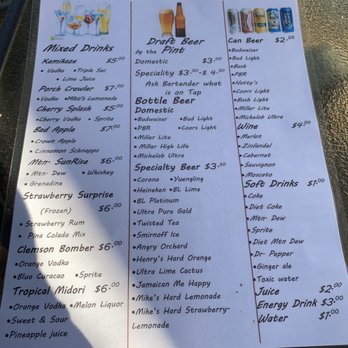 Mixed Drinks
Kamikaze $5.00
• Vodka • Triple Sec
• Lime Juice
Porch Crawler $7.00
• Vodka • Mike's Lemonade
Cherry Splash $5.00
• Cherry Vodka • Sprite
Bad Apple $7.00
• Crown Apple
• Cinnamon Schnapps
Mtn- SunRise $6.00
• Mtn- Dew • Whiskey
• Grenadine
Strawberry Surprise
(Frozen) $6.00
• Strawberry Rum
• Pina Colada Mix
Clemson Bomber $6.00
• Orange Vodka
• Blue Curacao • Sprite
Tropical Midori $6.00
• Orange Vodka • Melon Liquor
• Sweet & Sour
• Pineapple juice
Draft Beer
by the Pint
Domestic $3.00
Speciality $3.50-$4.50
Ask Bartender what
is on Tap
Bottle Beer
Domestic
• Budweiser • Bud Light
• PBR • Coors Light
• Miller Lite
• Miller High Life
• Michelob Ultra
Specialty Beer $3.50
• Corona • Yuengling
• Heineken • BL Lime
• BL Platinum
• Ultra Pure Gold
• Twisted Tea
• Smirnoff Ice
• Angry Orchard
• Henry's Hard Orange
• Ultra Lime Cactus
• Jamaican Me Happy
• Mike's Hard Lemonade
• Mike's Hard Strawberry-
Lemonade
Can Beer $2.25
• Budweiser
• Bud Light
• Busch
• PBR
• Natty's
• Coors Light
• Bud Light
• Miller Lite
• Michelob Ultra
Wine $4.00
• Merlot
• Zinfandel
• Cabernet
• Sauvignon
• Moscato
Soft Drinks $1.00
• Coke
• Diet Coke
• Mtn- Dew
• Sprite
• Diet Mtn Dew
• Dr- Pepper
• Ginger ale
• Toxic water
Juice $2.00
Energy Drink $3.00
Water $1.00